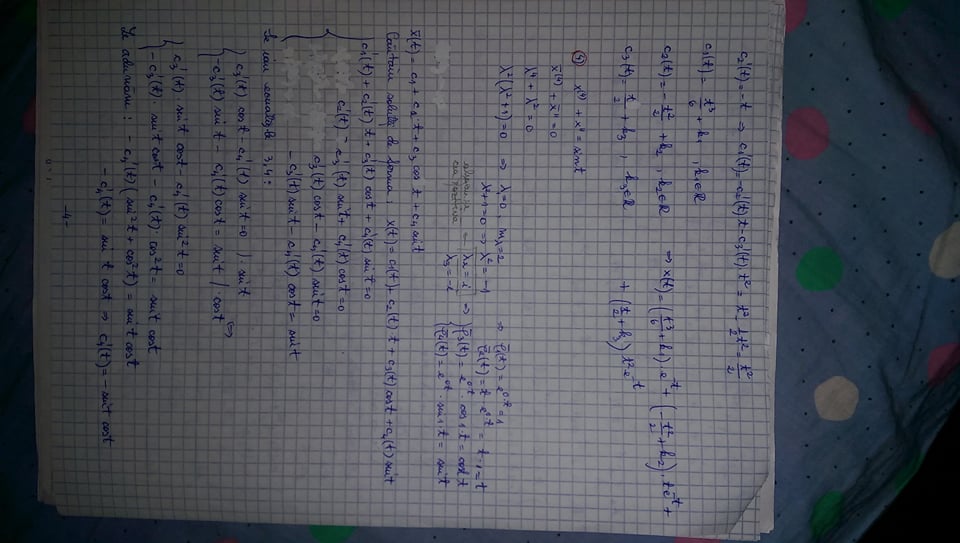 c₂'(t) = -t ⇒ c₁'(t) = -c₂'(t) t - c₃'(t)·t² = t² - 1/2 t² = t²/2
c₁(t) = t³/6 + k₁, k₁∈ℝ
c₂(t) = -t²/2 + k₂, k₂∈ℝ ⇒ x(t) = (t³/6 + k₁)·e^-t + (-t²/2 + k₂)·te^-t +
c₃(t) = t/2 + k₃, k₃∈ℝ + (t/2 + k₃) t² e^-t
④ x⁽⁴⁾ + x'' = sin t
x̄⁽⁴⁾ + x̄'' = 0
λ⁴ + λ² = 0
λ²(λ²+1) = 0 ⇒ λ₁=0, m_λ=2 ⇒ φ̄₁(t) = e^0·t = 1
λ²+1=0 ⇒ λ² = -1 φ̄₂(t) = t·e^0·t = t·1 = t
λ₂ = i ⇒ φ̄₃(t) = e^0t · cos 1·t = cos t
λ₃ = -i φ̄₄(t) = e^0t · sin 1·t = sin t
x̄(t) = c₁ + c₂·t + c₃ cos t + c₄ sin t
Căutăm soluții de forma: x(t) = c₁(t) + c₂(t)·t + c₃(t) cos t + c₄(t) sin t
c₁'(t) + c₂'(t) t + c₃'(t) cos t + c₄'(t) sin t = 0
c₂'(t) - c₃'(t) sin t + c₄'(t) cos t = 0
c₃'(t) cos t - c₄'(t) sin t = 0
-c₃'(t) sin t - c₄'(t) cos t = sin t
Se iau ecuațiile 3,4:
c₃'(t) cos t - c₄'(t) sin t = 0 |· sin t
-c₃'(t) sin t - c₄'(t) cos t = sin t |· cos t ⇔
c₃'(t)· sin t cos t - c₄'(t) sin² t = 0
-c₃'(t)· sin t cos t - c₄'(t)· cos² t = sin t cos t
Le adunăm: -c₄'(t)(sin² t + cos² t) = sin t cos t
-c₄'(t) = sin t cos t ⇒ c₄'(t) = -sin t cos t
-4-